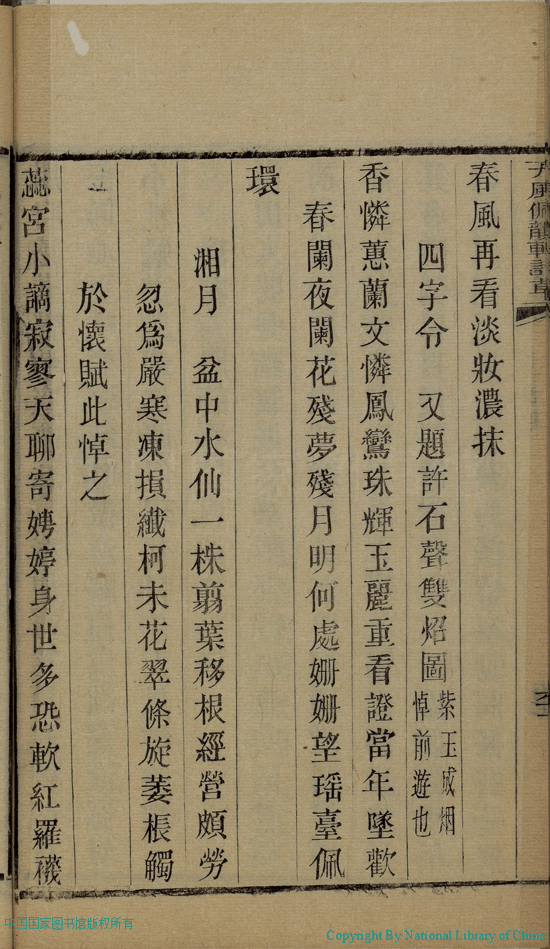 春風再看淡妝濃抹
四字令　又題許石聲雙炤圖
紫玉成烟
悼前遊也
香憐蕙蘭文憐鳳鸞珠輝玉麗重看證當年墜歡
春闌夜闌花殘夢殘月明何處姍姍望瑤臺佩
環
湘月　盆中水仙一株翦葉移根經營頗勞
忽爲嚴寒凍損纖柯未花翠條旋萎棖觸
於懷賦此悼之
蕊宮小謫寂寥天聊寄娉婷身世多恐軟紅羅襪
中国国家图书馆版权所有
Copyright By National Library of China